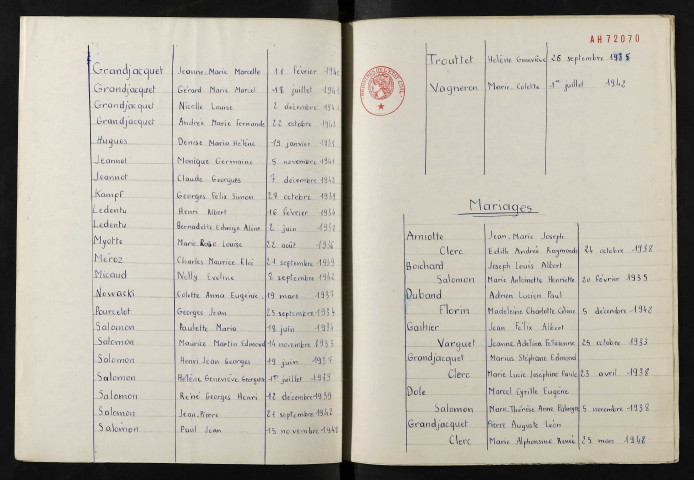 Grandjacquet Jeanne Marie Marcelle 11 février
Grandjacquet Gérard Marie Marcel 18 juillet 1941
Grandjacquet Nicolle Louise 2 décembre 1941
Grandjacquet Andrée Marie Fernande 22 octobre 1942
Hugues Denise Maria Hélène 19 janvier
Jeannot Monique Germaine 5 novembre 1941
Jeannot Claude Georges 7 décembre 1942
Kampf Georges Félix Simon 28 octobre 1939
Ledentu Henri Albert 16 février 1934
Ledentu Bernadette Edwige Aline 2 juin
Myotte Marie Rose Louise 22 août
Méroz Charles Maurice Eloi 21 septembre 1939
Micaud Nelly Eveline 8 septembre 1942
Nowacki Colette Anna Eugénie 19 mars 1937
Pourcelot Georges Jean 25 septembre 1934
Salomon Paulette Maria 18 juin 1934
Salomon Maurice Martin Edmond 14 novembre 1935
Salomon Henri Jean Georges 19 juin
Salomon Hélène Geneviève Georgette 1er juillet 1939
Salomon René Georges Henri 12 décembre 1939
Salomon Jean-Pierre 21 septembre 1942
Salomon Paul Jean 15 novembre 1942
AH72070
Trouttet Hélène Geneviève 26 septembre 1935
Vagneron Marie Colette 1er juillet 1942
Mariages
Amiotte Jean-Marie Joseph
Clerc Edith Andrée Raymonde 24 octobre 1938
Boichard Joseph Louis Albert
Salomon Marie Antoinette Henriette 20 février 1935
Duband Adrien Lucien Paul
Florin Madeleine Charlotte Céline 5 décembre 1942
Gauthier Jean Félix Albert
Varguet Jeanne Adelina Etiennne 25 octobre 1933
Grandjacquet Marius Stéphane Edmond
Clerc Marie Lucie Joséphine Paule 23 avril 1938
Dole Marcel Cyrille Eugène
Salomon Marie Thérèse Anne Edwige 5 novembre 1938
Grandjacquet Pierre Auguste Léon
Clerc Marie Alphonsine Renée 25 mars